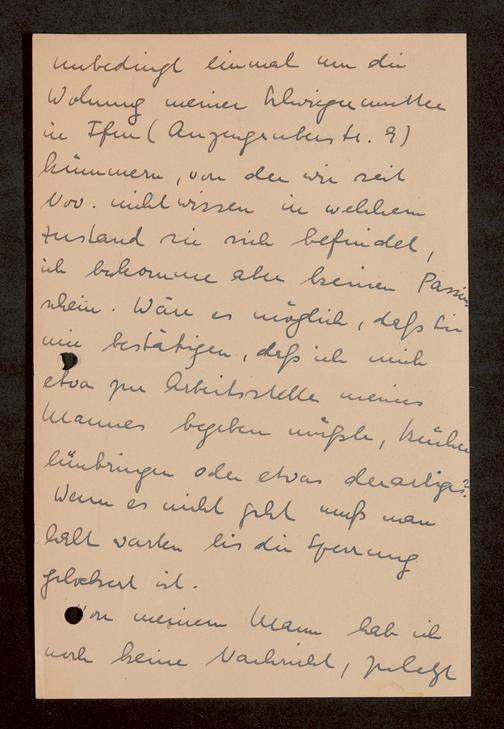 unbedingt einmal um die
Wohnung meiner Schwiegermutter
in Ifen (Anzengruberstr. 9)
kümmern, von der wir seit
Nov. nicht wissen in welchem
Zustand sie sich befindet,
ich bekomme aber keinen Passier
schein. Wäre es möglich, daß Sie
mir bestätigen, daß ich mich
etwa zur Arbeitsstelle meines
Mannes begeben müßte,
oder etwas derartiges?
Wenn es nicht geht muß man
halt warten bis die Sperrung
gelockert ist.
Von meinem Mann hab ich
noch keine Nachricht, zuletzt